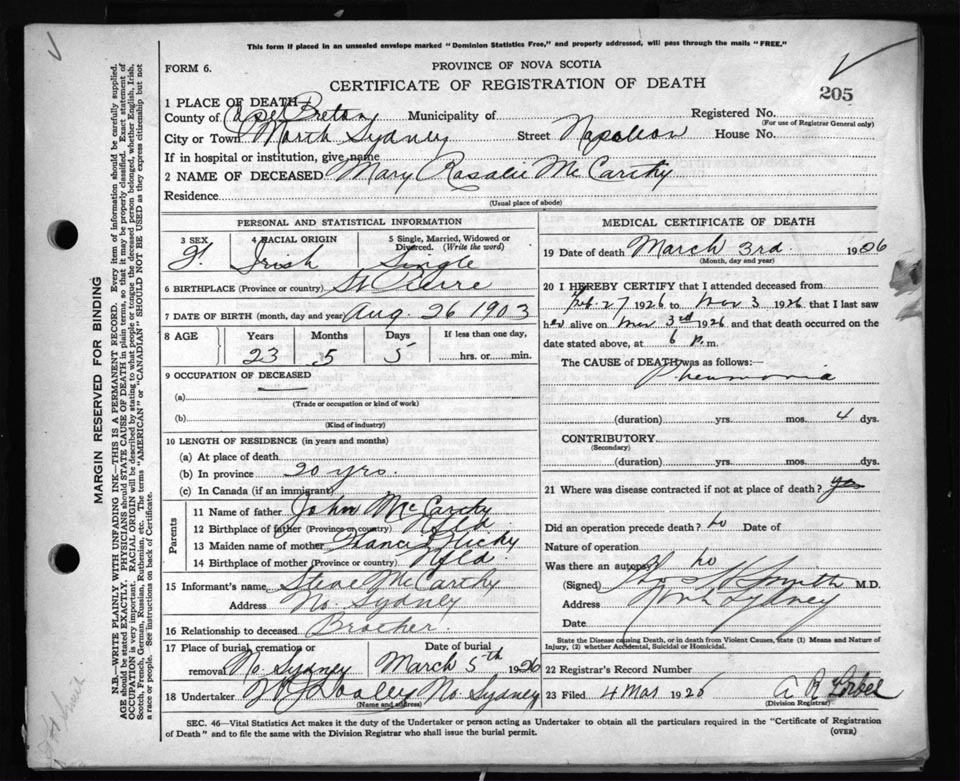 This form if placed in an unsealed envelope marked "Dominion Statistics Free," and properly addressed, will pass through the mails "FREE."
FORM 6.
PROVINCE OF NOVA SCOTIA
CERTIFICATE OF REGISTRATION OF DEATH
205
1 PLACE OF DEATH
County of Cape Breton Municipality of Registered No.
(For use of Registrar General only)
City or Town North Sydney Street Napoleon House No.
If in hospital or institution, give name
2 NAME OF DECEASED Mary Rosalie McCarthy
Residence
(Usual place of abode)
PERSONAL AND STATISTICAL INFORMATION
3 SEX 4 RACIAL ORIGIN 5 Single, Married, Widowed or Divorced. (Write the word)
F. Irish Single
6 BIRTHPLACE (Province or country) St Pierre
7 DATE OF BIRTH (month, day and year) Aug. 26 1903
8 AGE Years Months Days If less than one day,
23 5 5 hrs. or min.
9 OCCUPATION OF DECEASED
(a)
(Trade or occupation or kind of work)
(b)
(Kind of industry)
10 LENGTH OF RESIDENCE (in years and months)
(a) At place of death
(b) In province 20 yrs.
(c) In Canada (if an immigrant)
Parents
11 Name of father John McCarthy
12 Birthplace of father (Province or country) Nfld
13 Maiden name of mother Hickey
14 Birthplace of mother (Province or country) Nfld
15 Informant's name Steve McCarthy
Address No. Sydney
16 Relationship to deceased Brother.
17 Place of burial, cremation or removal No. Sydney Date of burial March 5th 1926
18 Undertaker Dooley No. Sydney
(Name and address)
MEDICAL CERTIFICATE OF DEATH
19 Date of death March 3rd. 1906
(Month, day and year)
20 I HEREBY CERTIFY that I attended deceased from
Feb. 27 1926 to Mar 3 1926 that I last saw
her alive on Mar 3rd 1926 and that death occurred on the
date stated above, at 6 p.m.
The CAUSE of DEATH was as follows:—
Pneumonia
(duration) yrs. mos. 4 dys.
CONTRIBUTORY
(Secondary)
(duration) yrs. mos. dys.
21 Where was disease contracted if not at place of death? yes
Did an operation precede death? no Date of
Nature of operation
Was there an autopsy? no
(Signed) Smith M.D.
Address North Sydney
Date
State the Disease causing Death, or in death from Violent Causes, state (1) Means and Nature of
Injury, (2) whether Accidental, Suicidal or Homicidal.
22 Registrar's Record Number
23 Filed 4 Mar 1926
(Division Registrar)
SEC. 46—Vital Statistics Act makes it the duty of the Undertaker or person acting as Undertaker to obtain all the particulars required in the "Certificate of Registration
of Death" and to file the same with the Division Registrar who shall issue the burial permit.
(OVER)
MARGIN RESERVED FOR BINDING
N.B.—WRITE PLAINLY WITH UNFADING INK—THIS IS A PERMANENT RECORD. Every item of information should be carefully supplied.
AGE should be stated EXACTLY. PHYSICIANS should STATE CAUSE OF DEATH in plain terms, so that it may be properly classified. Exact statement of
OCCUPATION is very important. RACIAL ORIGIN will be described by stating to what people or tongue the deceased person belonged, whether English, Irish,
Scotch, French, German, Russian, Ruthenian, etc. The terms "AMERICAN" or "CANADIAN" SHOULD NOT BE USED as they express citizenship but not
a race or people. See instructions on back of Certificate.